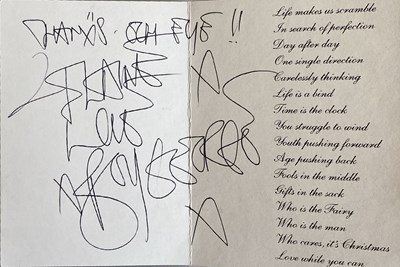 LOVE
BOY GEORGE
Life makes us scramble
In search of perfection
Day after day
One single direction
Carelessly thinking
Life is a bind
Time is the clock
You struggle to wind
Youth pushing forward
Age pushing back
Fools in the middle
Gifts in the sack
Who is the Fairy
Who is the man
Who cares, it's Christmas
Love while you can